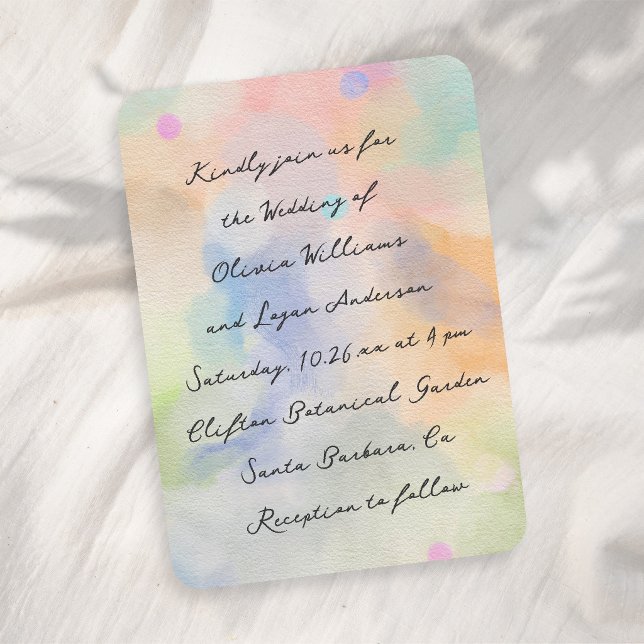 Kindly join us for
the Wedding of
Olivia Williams
and Logan Anderson
Saturday, 10.26.xx at 4 pm
Clifton Botanical Garden
Santa Barbara, Ca
Reception to follow